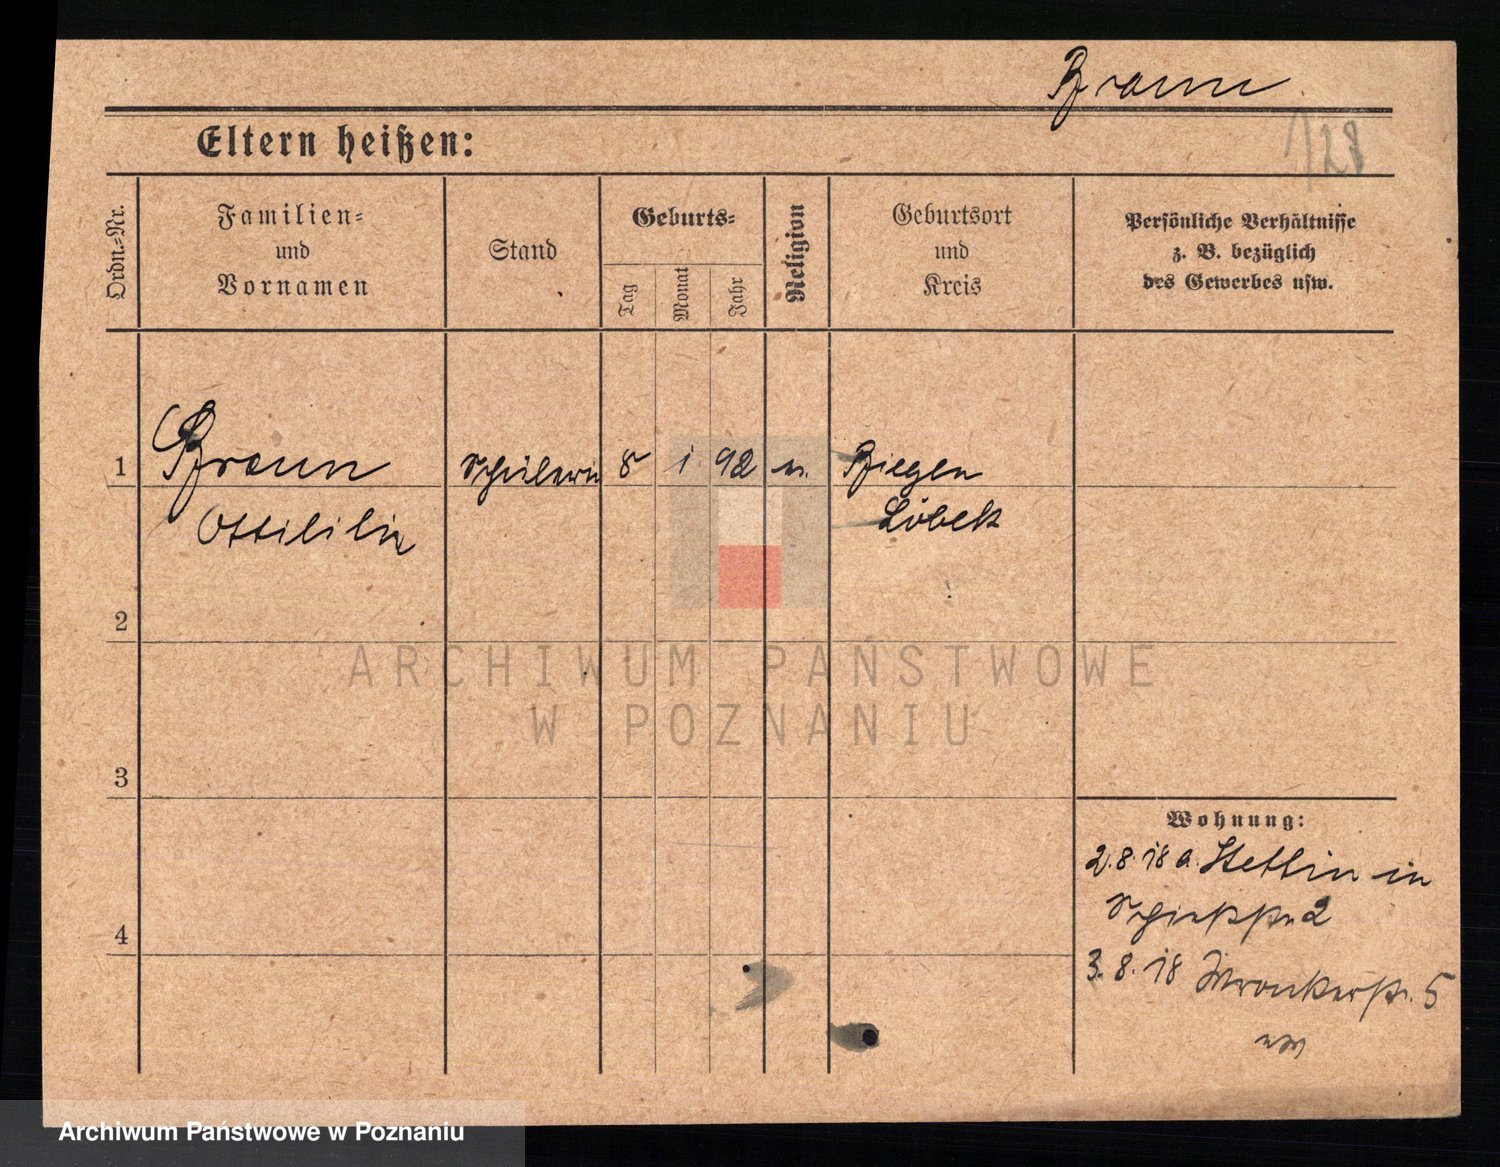 Braun
1/28
Eltern heißen:
Ordn.-Nr.
Familien-
und
Vornamen
Stand
Geburts-
Tag
Monat
Jahr
Religion
Geburtsort
und
Kreis
Persönliche Verhältnisse
z. B. bezüglich
des Gewerbes usw.
1
Braun
Schülerin
8
1
92
Biegen
Ottililie
Löbek
2
ARCHIWUM PAŃSTWOWE
W POZNANIU
3
Wohnung:
2.8.18 a. Stettin in
2
4
3.8.18 Wronkerstr. 5
Archiwum Państwowe w Poznaniu